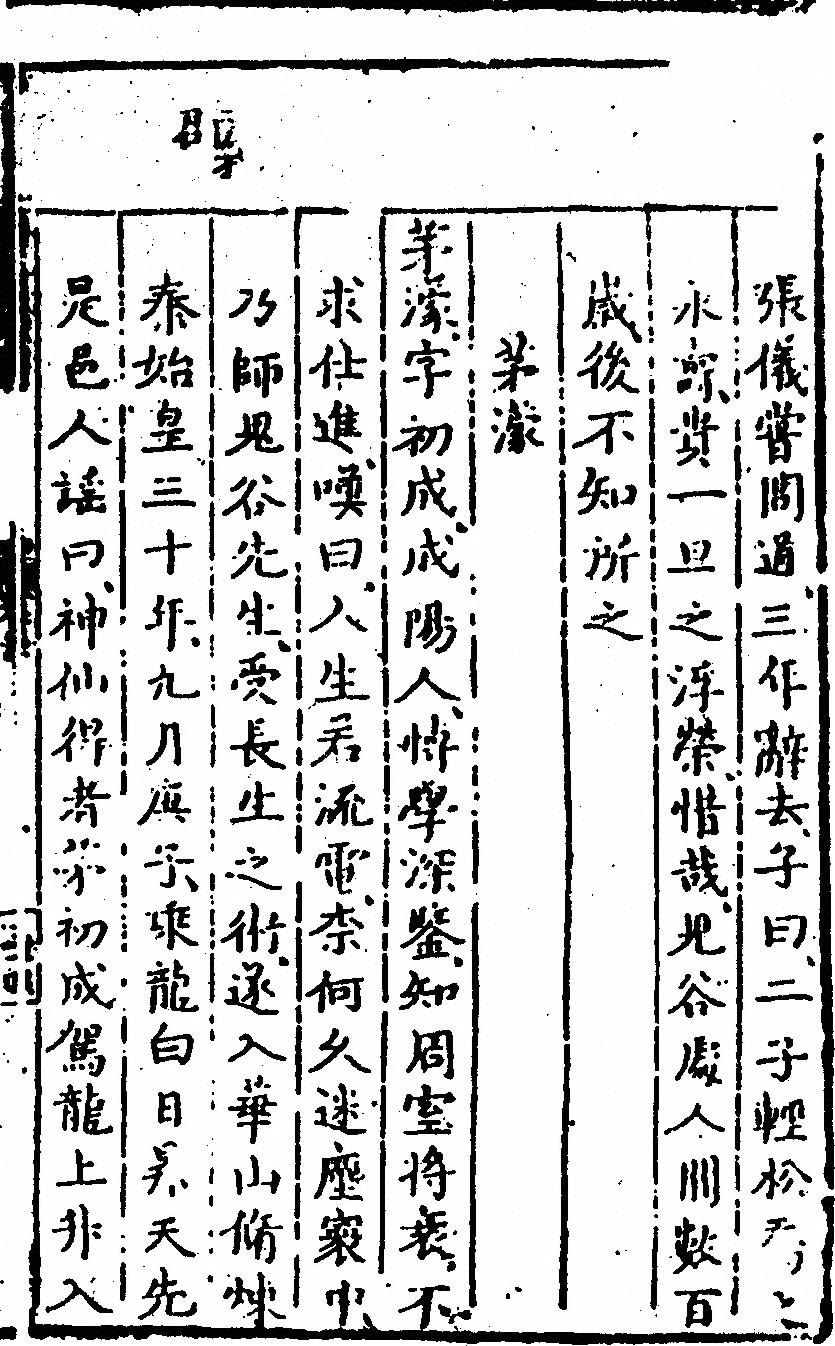 張儀嘗問道三年辭去子曰二子輕松
永壽貴一旦之浮榮惜哉鬼谷處人間數百
歲後不知所之
茅濛
茅濛字初成咸陽人博學深鑒知周室將衰不
求仕進嘆曰人生若流電奈何久迷塵寰中
乃師鬼谷先生受長生之術遂入華山脩煉
秦始皇三十年九月庚子乘龍白日昇天先
是邑人謠曰神仙得者茅初成駕龍上升入